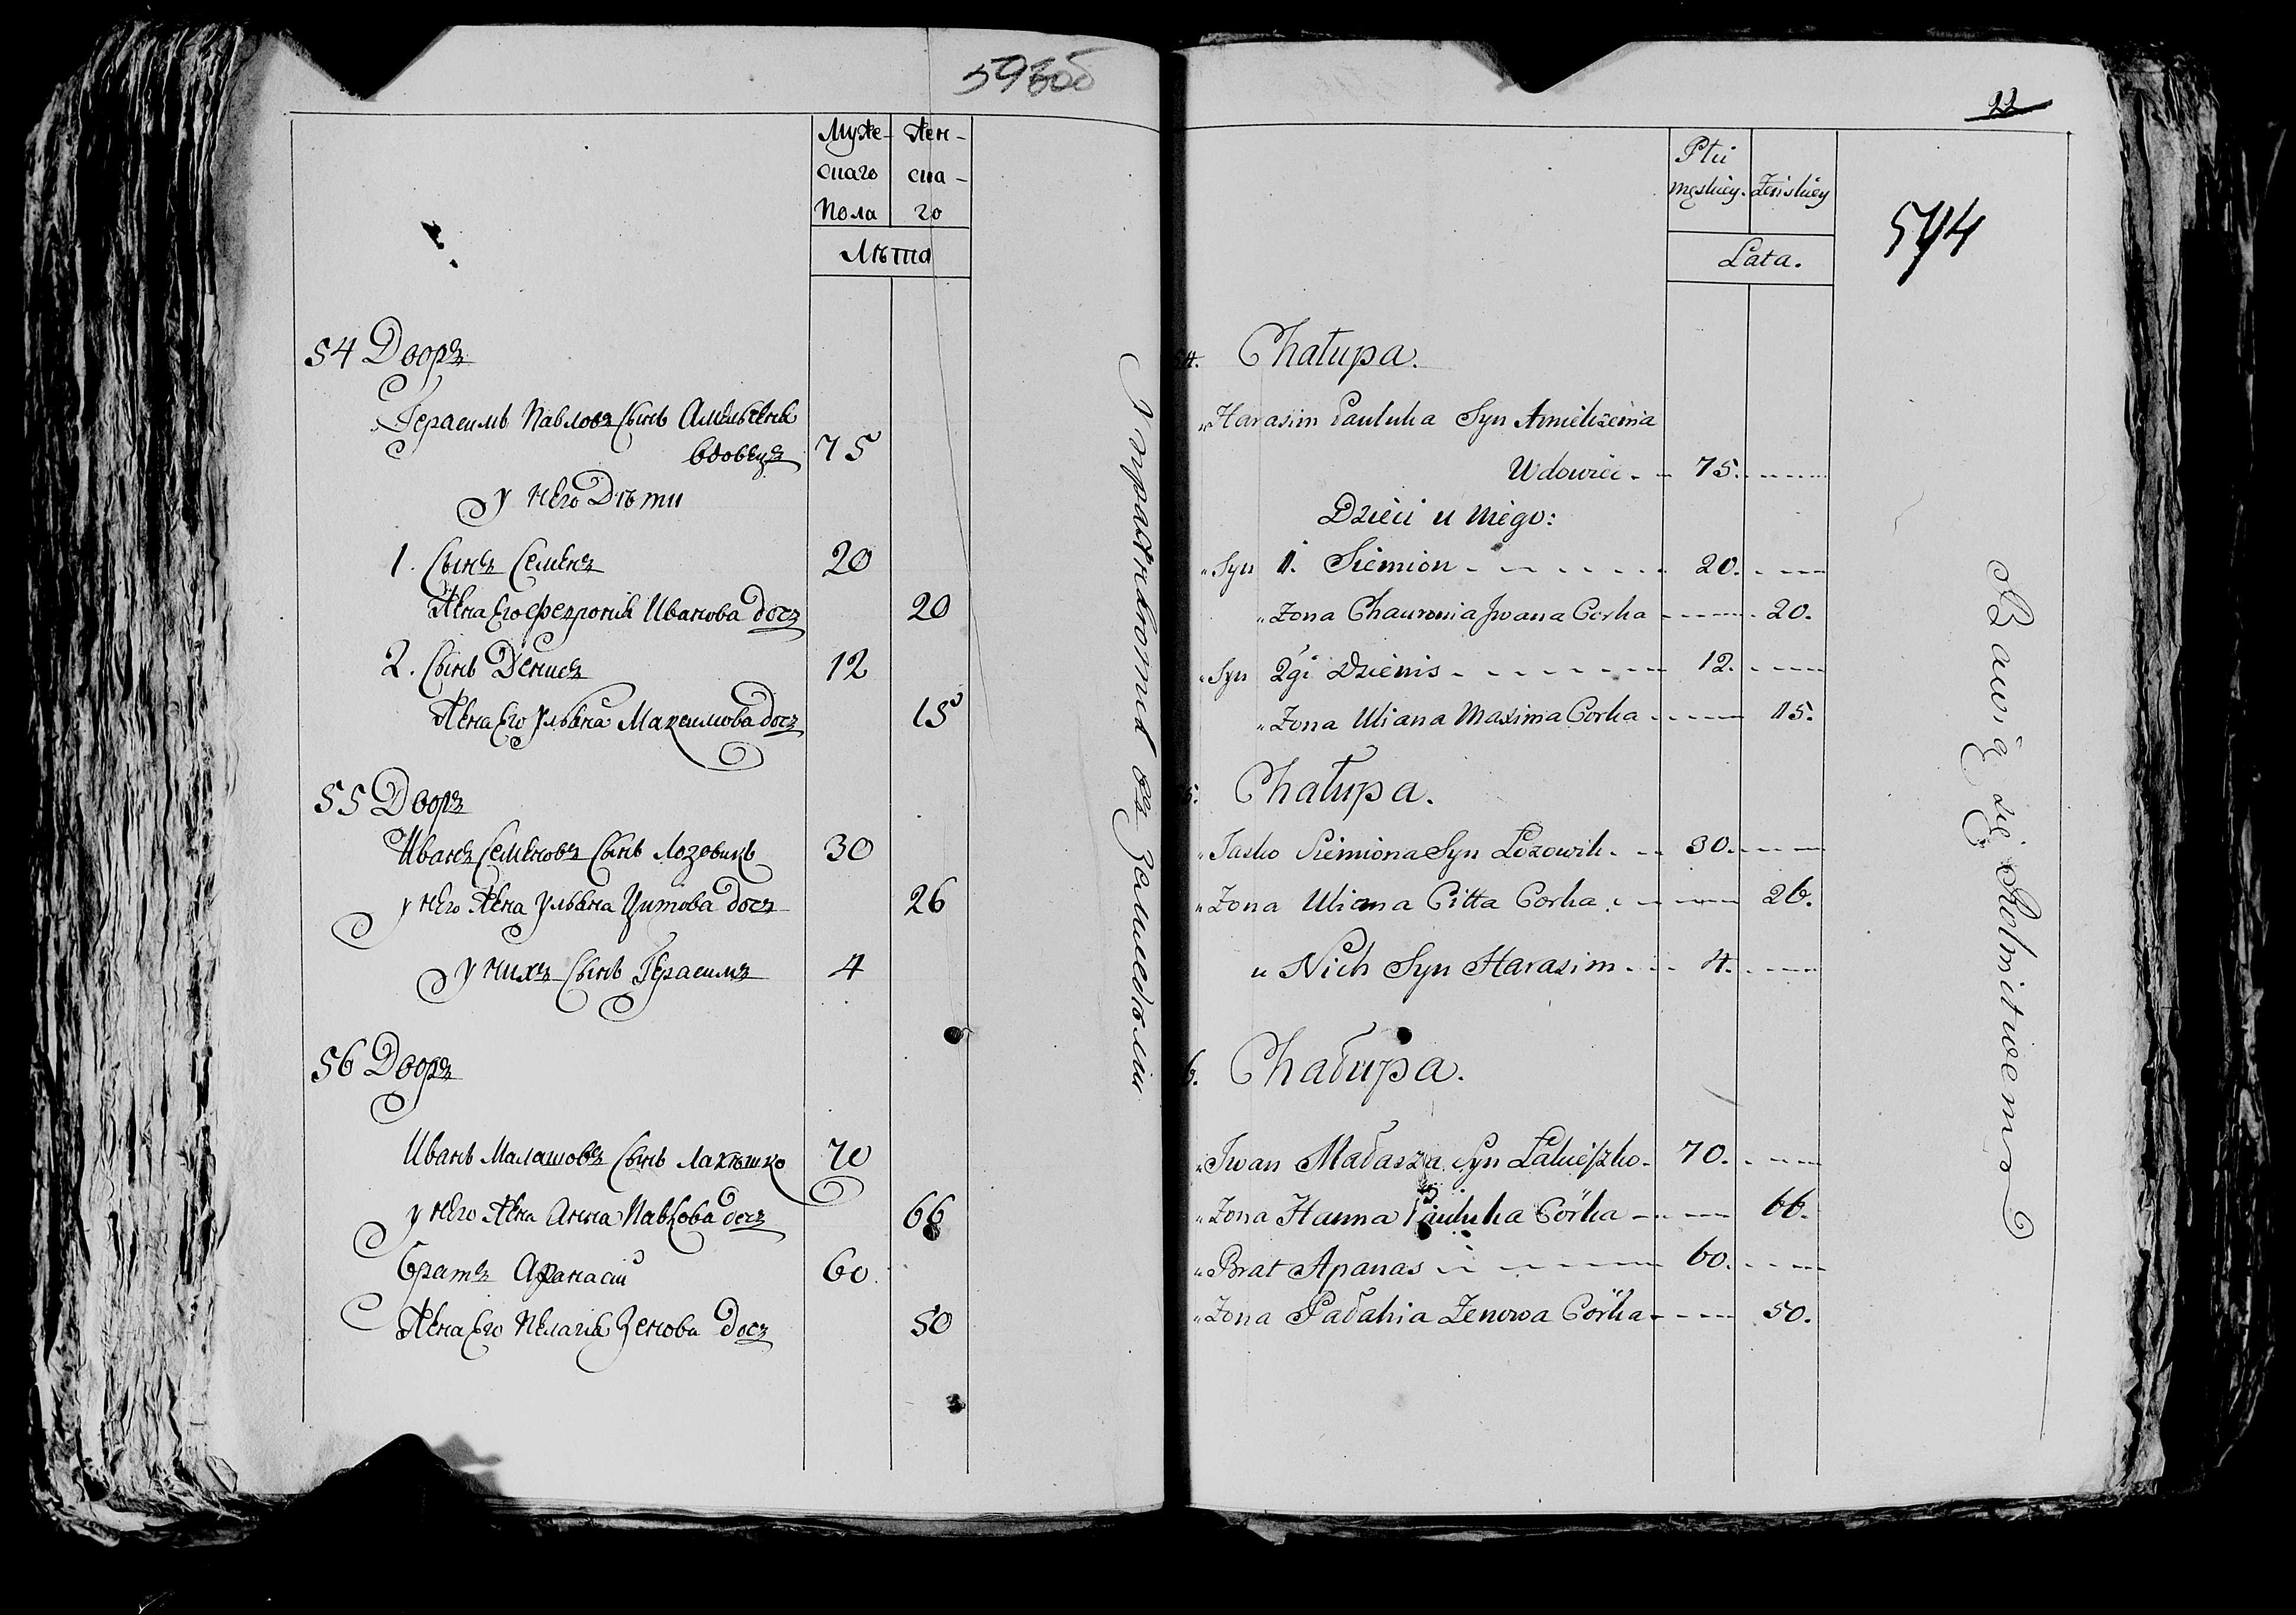 593об
Муже- Жен-
скаго ска-
Пола го
Лѣта
54 Дворъ
Герасимъ Павловъ Сынъ Амельченя
вдовецъ 75
у него Дѣти
1. Сынъ Семенъ 20
Жена Его Феврония Иванова дочъ 20
2. Сынъ Денисъ 12
Жена Его Ульяна Максимова дочъ 15
55 Дворъ
Иванъ Семеновъ Сынъ Лозовикъ 30
у него Жена Ульяна Цитова дочъ 26
у нихъ Сынъ Герасимъ 4
56 Дворъ
Иванъ Малашовъ Сынъ Лахѣшко 70
у него Жена Анна Павлова дочъ 66
Братъ Афанасій 60.
Жена Его Пелагия Зенова Дочъ 50
Упражняются въ Земледѣліи
22
594
Płci
męskiey. Żeńskiey
Lata.
54. Chałupa.
Harasim Pauluka Syn Amielczenia
Wdowiec 75.
Dzieci u niego:
Syn 1. Siemion 20.
Zona Chauronia Jwana Corka 20.
Syn 2gi Dzienis 12.
Zona Uliana Maxima Corka 15.
5. Chałupa.
Jasko Siemiona Syn Łozowik 30.
Zona Uliana Citta Corka 26.
u Nich Syn Harasim 4.
6. Chałupa.
Jwan Małasza Syn Lakieszko 70.
Zona Hanna Pauluka Córka 66.
Brat Apanas 60.
Zona Pałahia Zenowa Córka 50.
Bawią się Rolnitwem